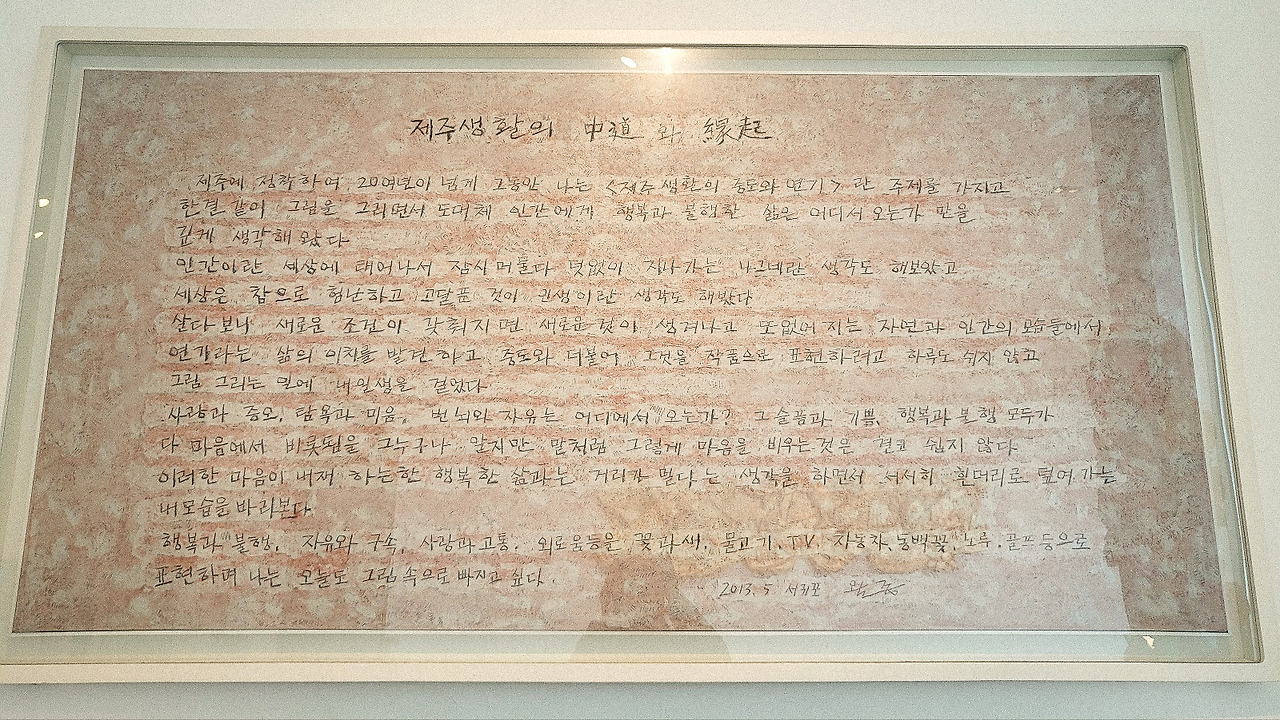 제주생활의 中道와 緣起
제주에 정착하여 20여년이 넘게 그동안 나는 <제주생활의 중도와 연기> 란 주제를 가지고
한결같이 그림을 그리면서 도대체 인간에게 행복과 불행한 삶은 어디서 오는가 만을
깊게 생각해 왔다
인간이란 세상에 태어나서 잠시 머물다 덧없이 지나가는 나그네란 생각도 해보았고
세상은 참으로 험난하고 고달픈 것이 인생이란 생각도 해봤다
살다보니 새로운 조건이 갖춰지면 새로운 것이 생겨나고 또 없어지는 자연과 인간의 모습들에서
연기라는 삶의 이치를 발견하고 중도와 더불어 그것을 작품으로 표현하려고 하루도 쉬지 않고
그림 그리는 일에 내 일생을 걸었다
사랑과 증오, 탐욕과 미움, 번뇌와 자유는 어디에서 오는가? 그 슬픔과 기쁨, 행복과 불행 모두가
다 마음에서 비롯됨을 그누구나 알지만 말처럼 그렇게 마음을 비우는것은 결코 쉽지 않다
이러한 마음이 내재 하는한 행복한 삶과는 거리가 멀다는 생각을 하면서 서서히 흰머리로 덮여가는
내모습을 바라본다
행복과 불행, 자유와 구속, 사랑과 고통, 외로움등을 꽃과 새, 물고기, TV, 자동차, 동백꽃, 노루, 골프 등으로
표현하며 나는 오늘도 그림 속으로 빠지고 싶다.
2013. 5 서귀포 왈종